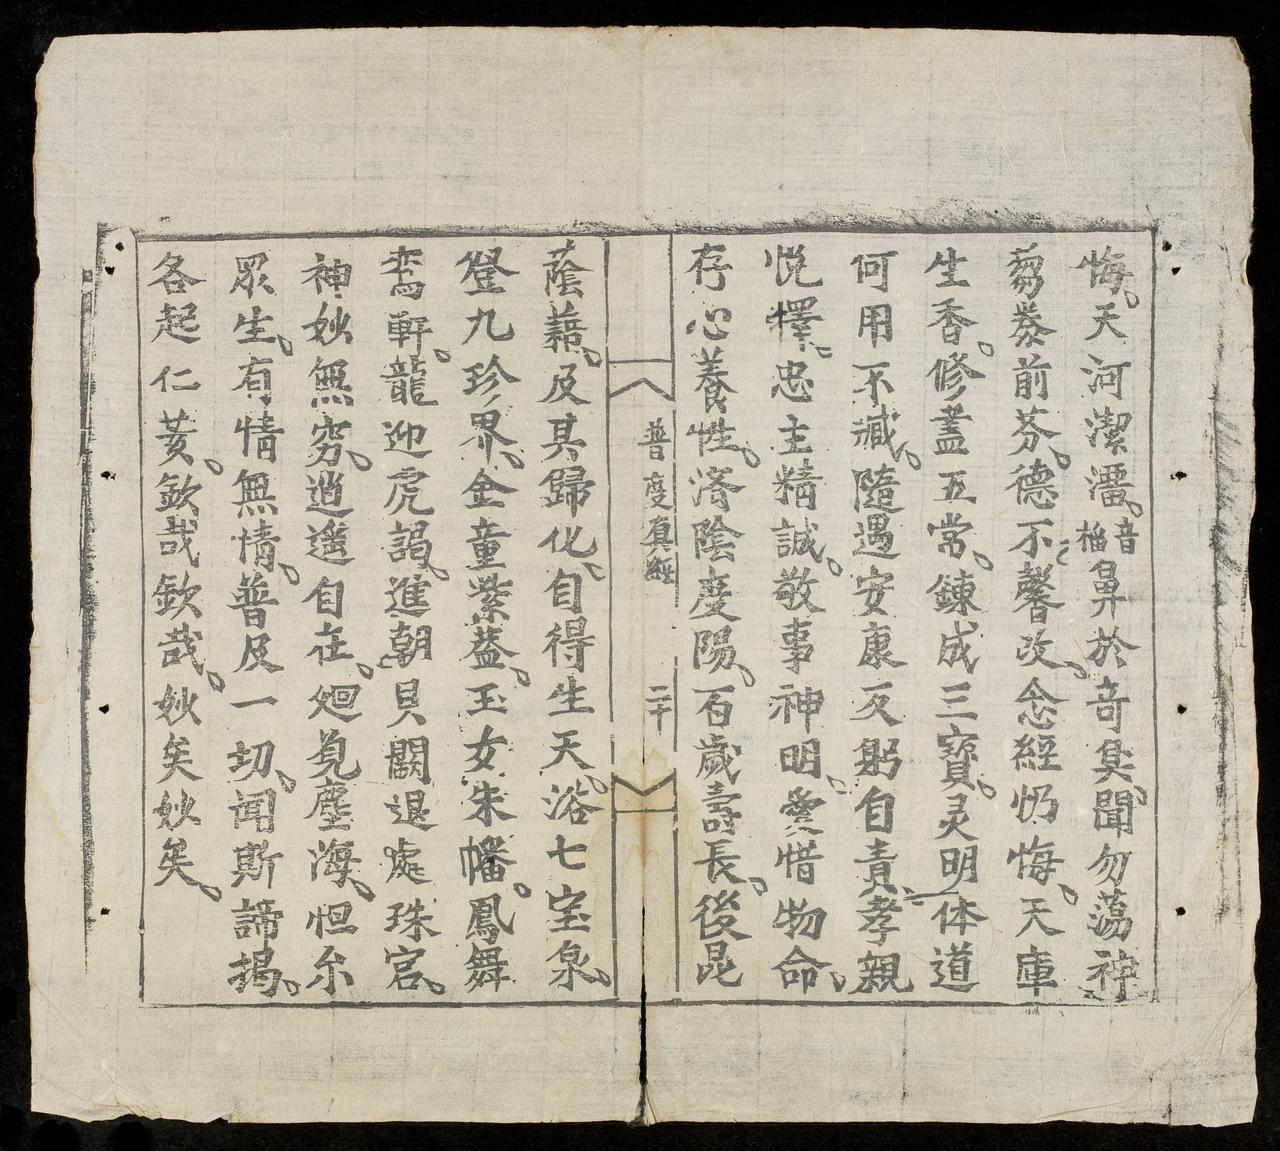 悔天河潔㵢音榴鼻於竒臭聞勿蕩神
蒭豢前芬德不馨改念經㣼悔天庫
生香修蓋五常鍊成三寳灵明体道
何用不臧隨遇安康反躬自責孝親
悦擇忠主精誠敬事神明愛惜物命
存心養性済陰度陽百歲壽長後昆
普度真經
二十
蔭藉及其歸化自得生天浴七宝泉
登九珍界金童紫蓋玉女朱幡鳳舞
鸾軒龍迎虎謁進朝貝闕退處珠宮
神妙無穷逍遥自在廻覓塵海怛尒
眾生有情無情普及一切聞斯諦揭
各起仁𫝑欽哉欽哉妙矣妙矣